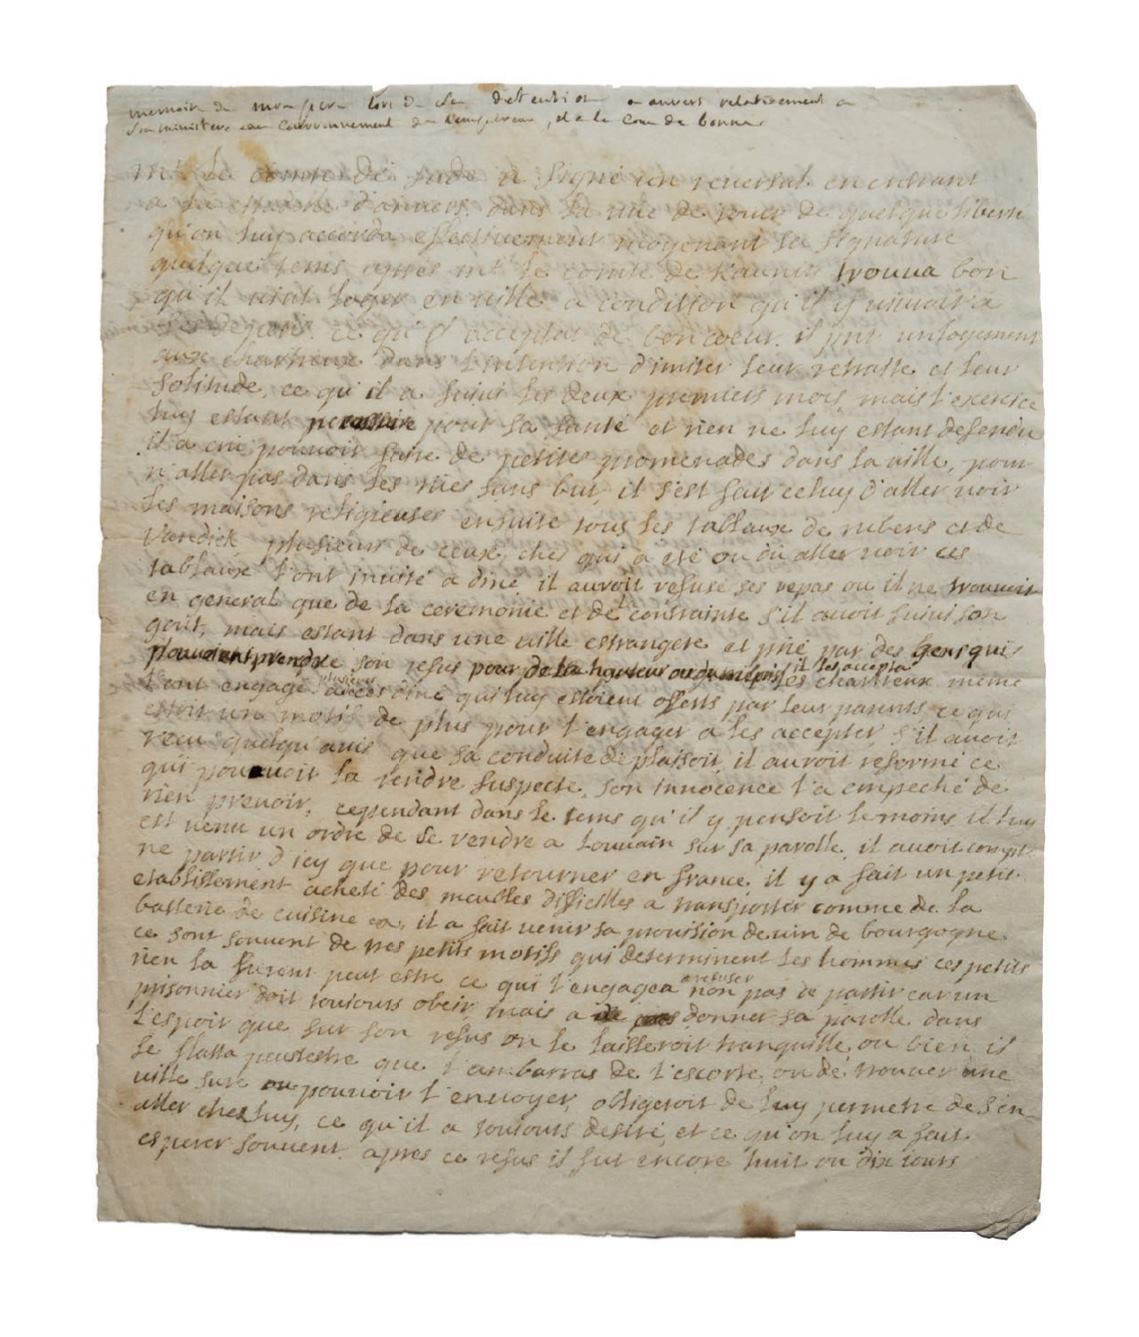 memoire de mon pere lors de sa detention a anvers relativement a
son ministere au couronnement de l'empereur, et a la cour de bonne
mr. le comte de sade a signé un reversal en entrant
a la citadelle d'anvers. dans la vüe de jouir de quelque liberté
qu'on luy accorda effectivement moyenant sa signature
quelques tems apres mr. le comte de Kaunits trouva bon
qu'il vint loger en ville a condition qu'il y vivroit a
ses depens. ce qu'il acceptat de bon coeur. il prit un logement
aux chartreux dans l'intention d'imiter leur retraite et leur
solitude, ce qu'il a suivi les deux premiers mois mais l'exercice
luy estant necessaire pour sa santé et rien ne luy estant defendu
il a crü pouvoir faire de petites promenades dans la ville, pour
n'aller pas dans les rües sans but, il s'est fait celuy d'aller voir
les maisons religieuses ensuite tous les tablaux de rubens et de
Vandick plusieurs de ceux ches qui a été ou dü aller voir ces
tablaux l'ont invité a diné il auroit refusé ses repas ou il ne trouvoit
en general que de la ceremonie et de la contrainte s'il avoit suivi son
goüt, mais estant dans une ville estrangere et prié par des gens qui
pouvoient prendre son refus pour de la hauteur ou du mépris il les accepta les chartreux même
l'ont engagé a plusieurs diné qui luy estoient offerts par leurs parents ce qui
estoit un motif de plus pour l'engager a les accepter, s'il avoit
recu quelqu'avis que sa conduite déplaisoit, il auroit reformé ce
qui pouvoit la rendre suspecte, son innocence l'a empeché de
rien prevoir, cependant dans le tems qu'il y pensoit le moins il luy
est venu un ordre de se rendre a Louvain sur sa parolle, il avoit compté
ne partir d'icy que pour retourner en france. il y a fait un petit
etablissement acheté des meubles difficilles a transporter comme de la
batterie de cuisine ca, il a fait venir sa provision de vin de bourgogne.
ce sont souvent de tres petits motifs qui determinent les hommes ces petits
rien la furent peut estre ce qui l'engagea a refuser non pas de partir car un
prisonnier doit toujours obeir mais a donner sa parolle dans
l'espoir que sur son refus on le laisseroit tranquille, ou bien il
se flatta peutestre que l'ambarras de l'escorte, ou de trouver une
ville sure ou pouvoir l'envoyer, obligeroit de luy permetre de s'en
aller chez luy, ce qu'il a toujours desiré, et ce qu'on luy a fait
esperer souvent. apres ce refus il fut encore huit ou dix jours